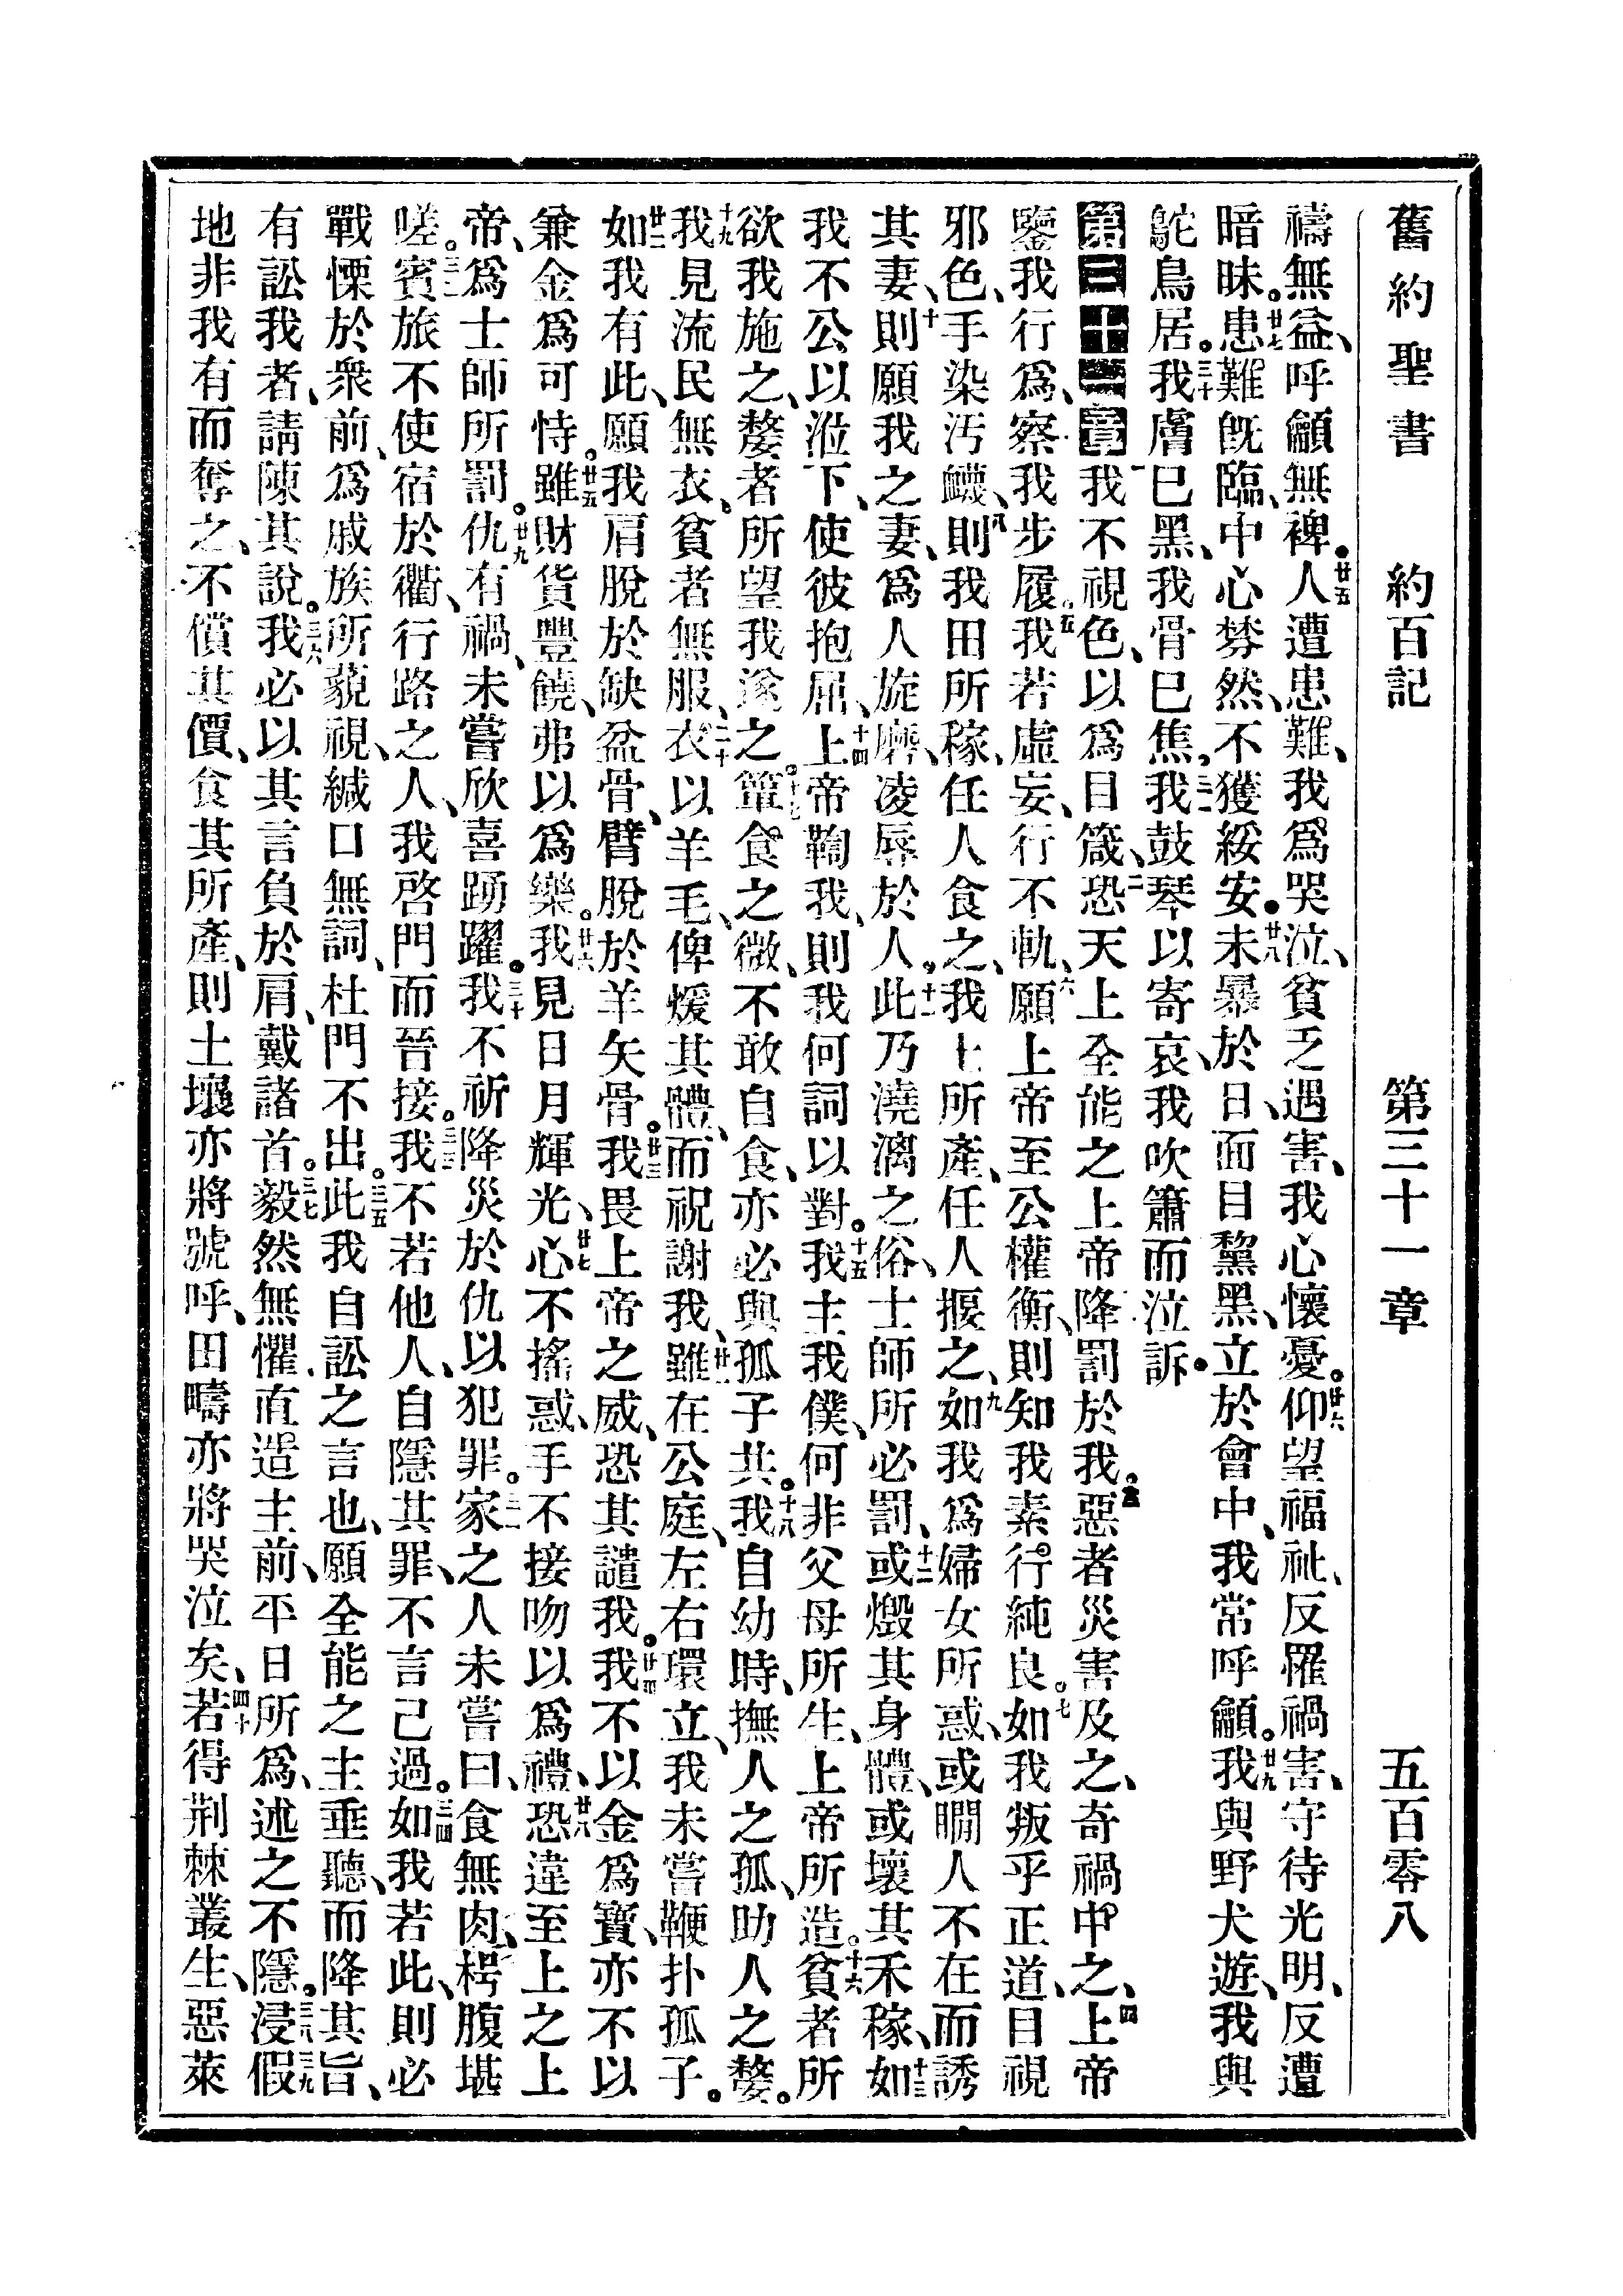 舊約聖書 約百記 第三十一章 五百零八
禱無益、呼籲無裨。廿五人遭患難、我爲哭泣、貧乏遇害、我心懷憂。廿六仰望福祉、反罹禍害、守待光明、反遭
暗昧。廿七患難旣臨、中心棼然、不獲綏安。廿八未暴於日、面目黧黑、立於會中、我常呼籲。廿九我與野犬遊、我與
鴕鳥居。三十我膚已黑、我骨已焦、三一我鼓琴以寄哀、我吹簫而泣訴。
第三十一章一我不視色、以爲目箴、二恐天上全能之上帝降罰於我。三言惡者災害及之、奇禍中之、四上帝
鑒我行爲、察我步履。五我若虛妄、行不軌、六願上帝至公權衡、則知我素行純良。七如我叛乎正道、目視
邪色、手染汚衊、八則我田所稼、任人食之、我土所產、任人揠之、九如我爲婦女所惑、或瞷人不在而誘
其妻、十則願我之妻、爲人旋磨、凌辱於人、十一此乃澆漓之俗、士師所必罰、十二或燬其身體、或壞其禾稼、十三如
我不公以涖下、使彼抱屈、十四上帝鞫我、則我何詞以對。十五我主我僕、何非父母所生、上帝所造。十六貧者所
欲我施之、嫠者所望我遂之。十七簞食之微、不敢自食、亦必與孤子共。十八我自幼時、撫人之孤、助人之嫠。
十九我見流民無衣、貧者無服、二十衣以羊毛、俾煖其體、而祝謝我、廿一雖在公庭、左右環立、我未嘗鞭扑孤子。
廿二如我有此、願我肩脫於缺盆骨、臂脫於羊矢骨。廿三我畏上帝之威、恐其譴我。廿四我不以金爲寶、亦不以
兼金爲可恃。廿五雖財貨豐饒、弗以爲樂。廿六我見日月輝光、廿七心不搖惑、手不接吻以爲禮、廿八恐違至上之上
帝、爲士師所罰。廿九仇有禍、未嘗欣喜踴躍。三十我不祈降災於仇以犯罪。三一家之人未嘗曰、食無肉、枵腹堪
嗟。三二賓旅不使宿於衢、行路之人、我啓門而晉接。三三我不若他人、自隱其罪、不言己過。三四如我若此、則必
戰慄於衆前、爲戚族所藐視、緘口無詞、杜門不出。三五此我自訟之言也、願全能之主垂聽、而降其旨、
有訟我者、請陳其說。三六我必以其言負於肩、戴諸首。三七毅然無懼、直造主前、平日所爲、述之不隱。三八三九浸假
地非我有而奪之、不償其價、食其所產、則土壤亦將號呼、田疇亦將哭泣矣、四十若得荆棘叢生、惡萊